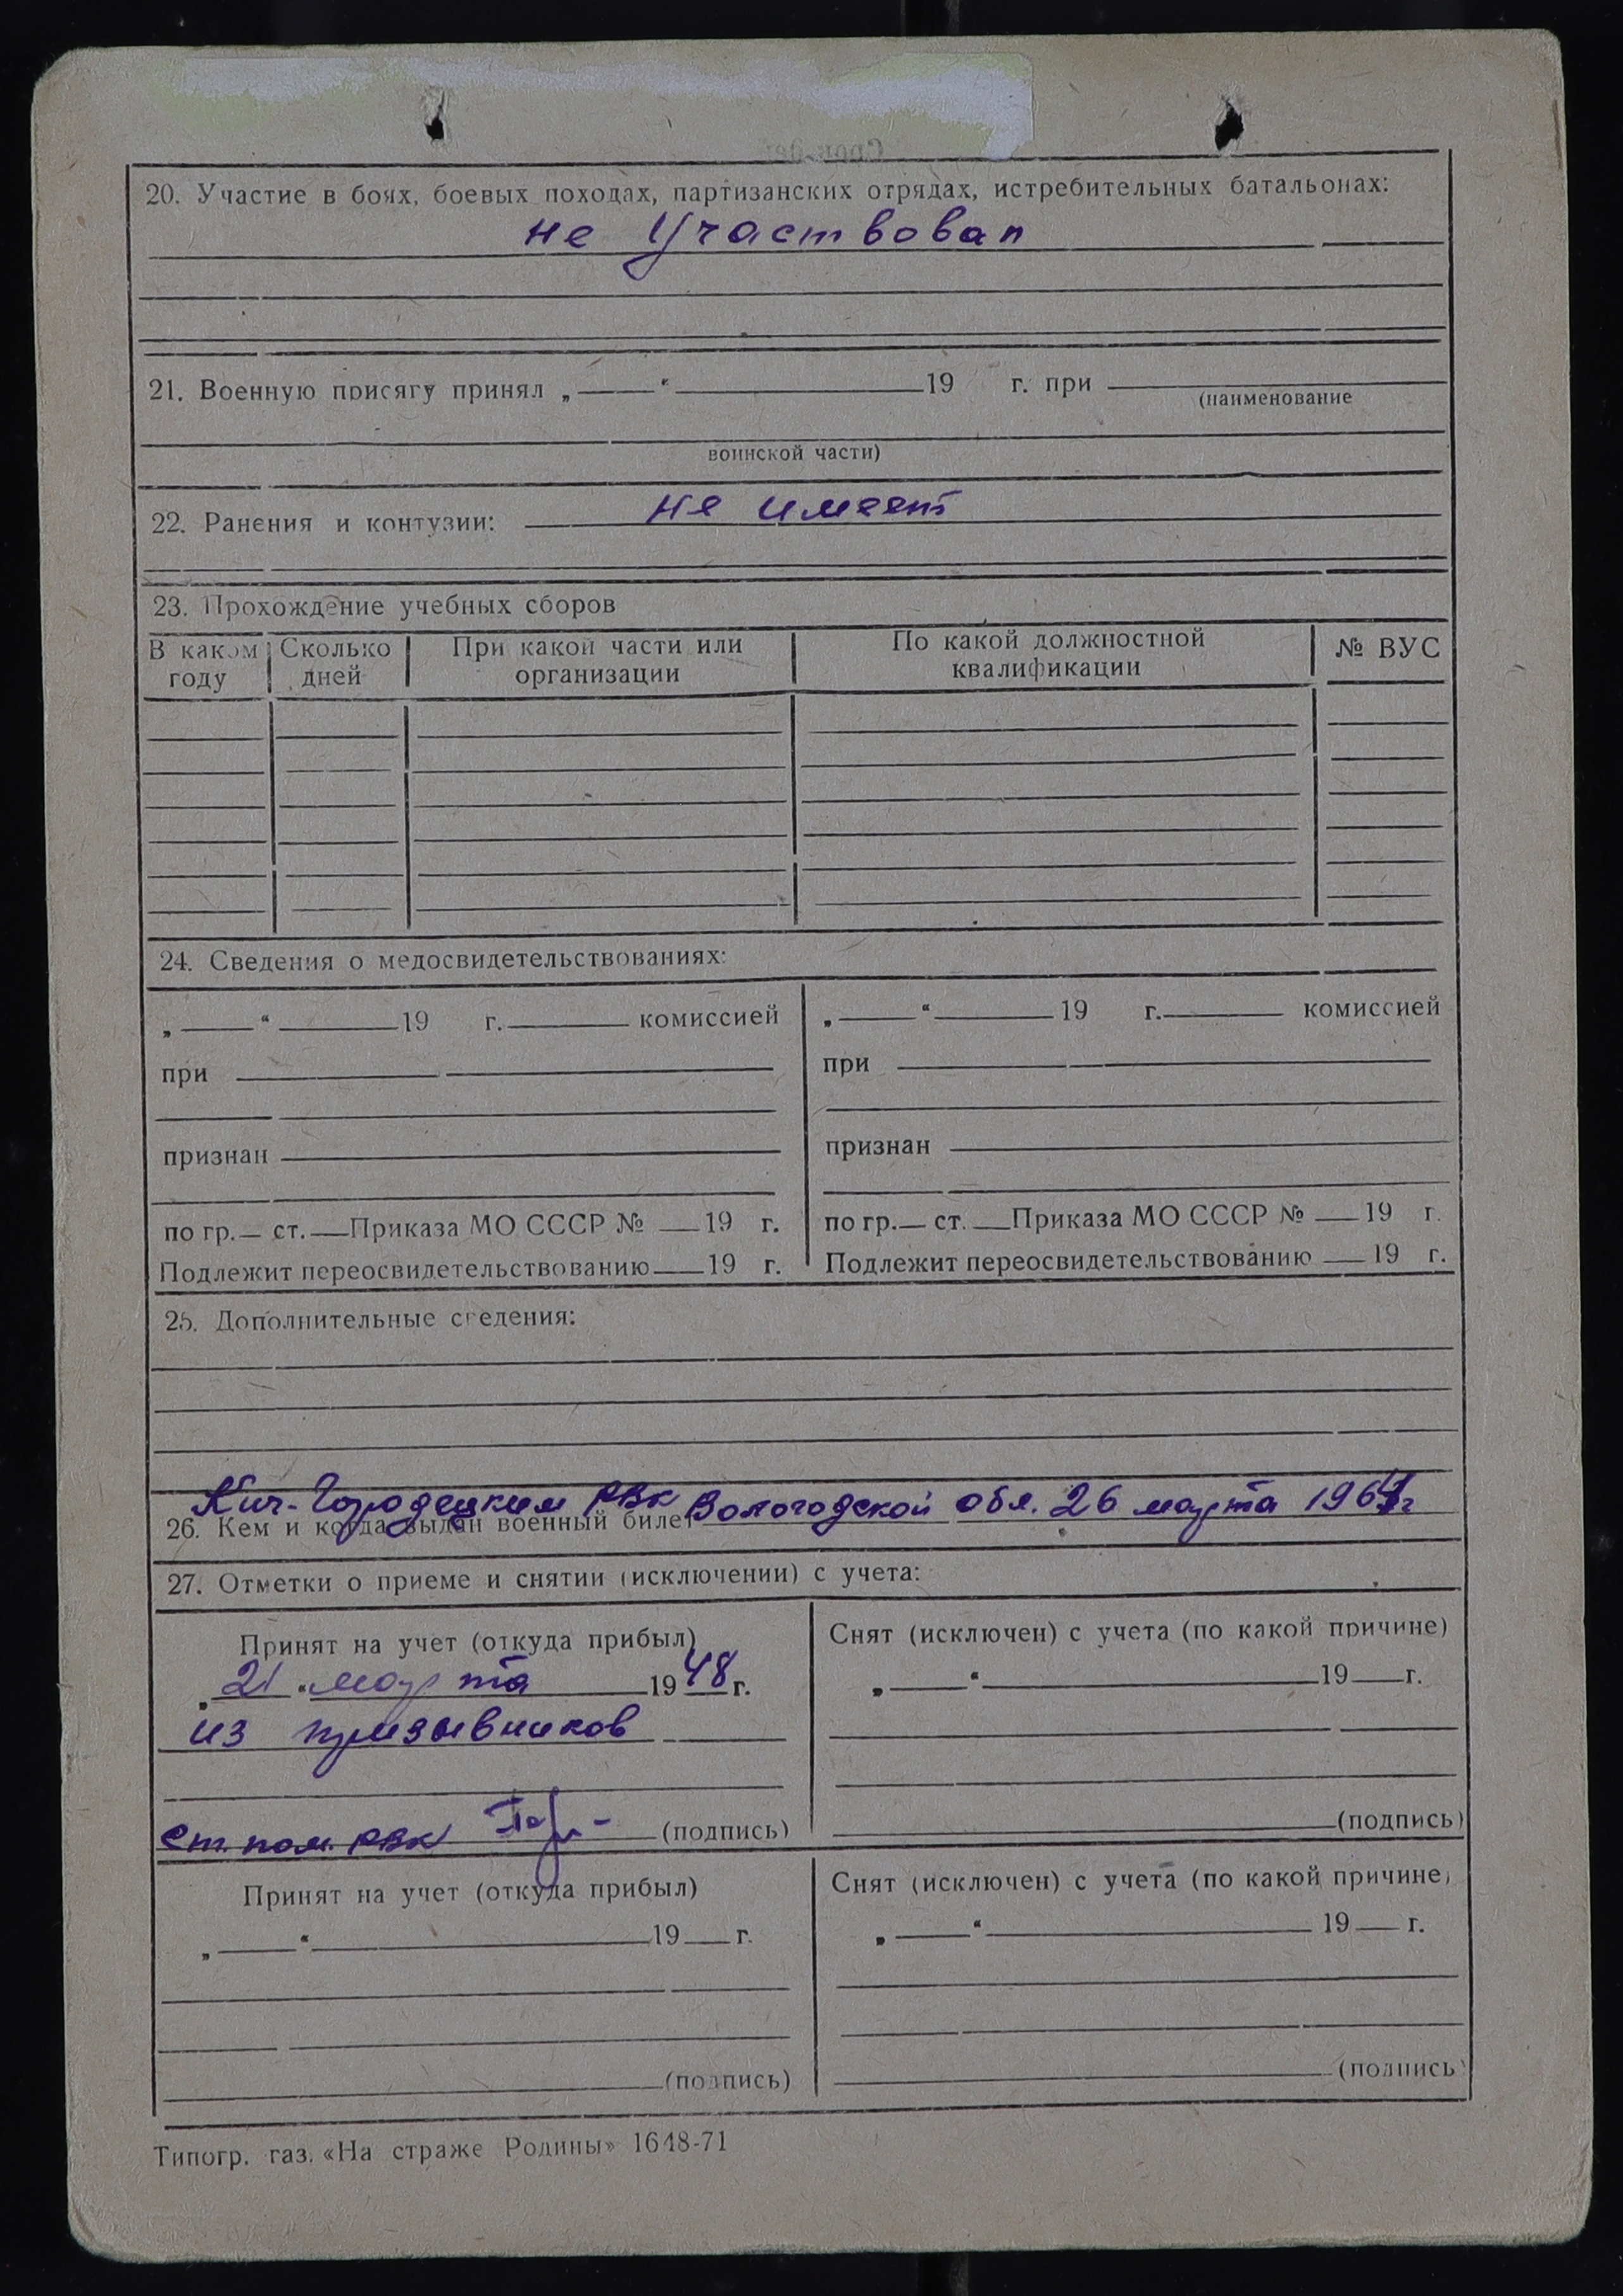 20. Участие в боях, боевых походах, партизанских отрядах, истребительных батальонах:
не участвовал
21. Военную присягу принял „ “ 19 г. при
(наименование
воинской части)
22. Ранения и контузии: не имеет
23. Прохождение учебных сборов
В каком году Сколько дней При какой части или организации По какой должностной квалификации № ВУС
24. Сведения о медосвидетельствованиях:
„ “ 19 г. комиссией
при
признан
по гр. ст. Приказа МО СССР № 19 г.
Подлежит переосвидетельствованию 19 г.
„ “ 19 г. комиссией
при
признан
по гр. ст. Приказа МО СССР № 19 г.
Подлежит переосвидетельствованию 19 г.
25. Дополнительные сведения:
Кич-Городецким РВК Вологодской обл. 26 марта 196 г
26. Кем и когда выдан военный билет
27. Отметки о приеме и снятии (исключении) с учета:
Принят на учет (откуда прибыл)
„21“ марта 1948 г.
из призывников
Ст. пом. РВК (подпись)
Снят (исключен) с учета (по какой причине)
„ “ 19 г.
(подпись)
Принят на учет (откуда прибыл)
„ “ 19 г.
(подпись)
Снят (исключен) с учета (по какой причине)
„ “ 19 г.
(подпись)
Типогр. газ. «На страже Родины» 1648-71